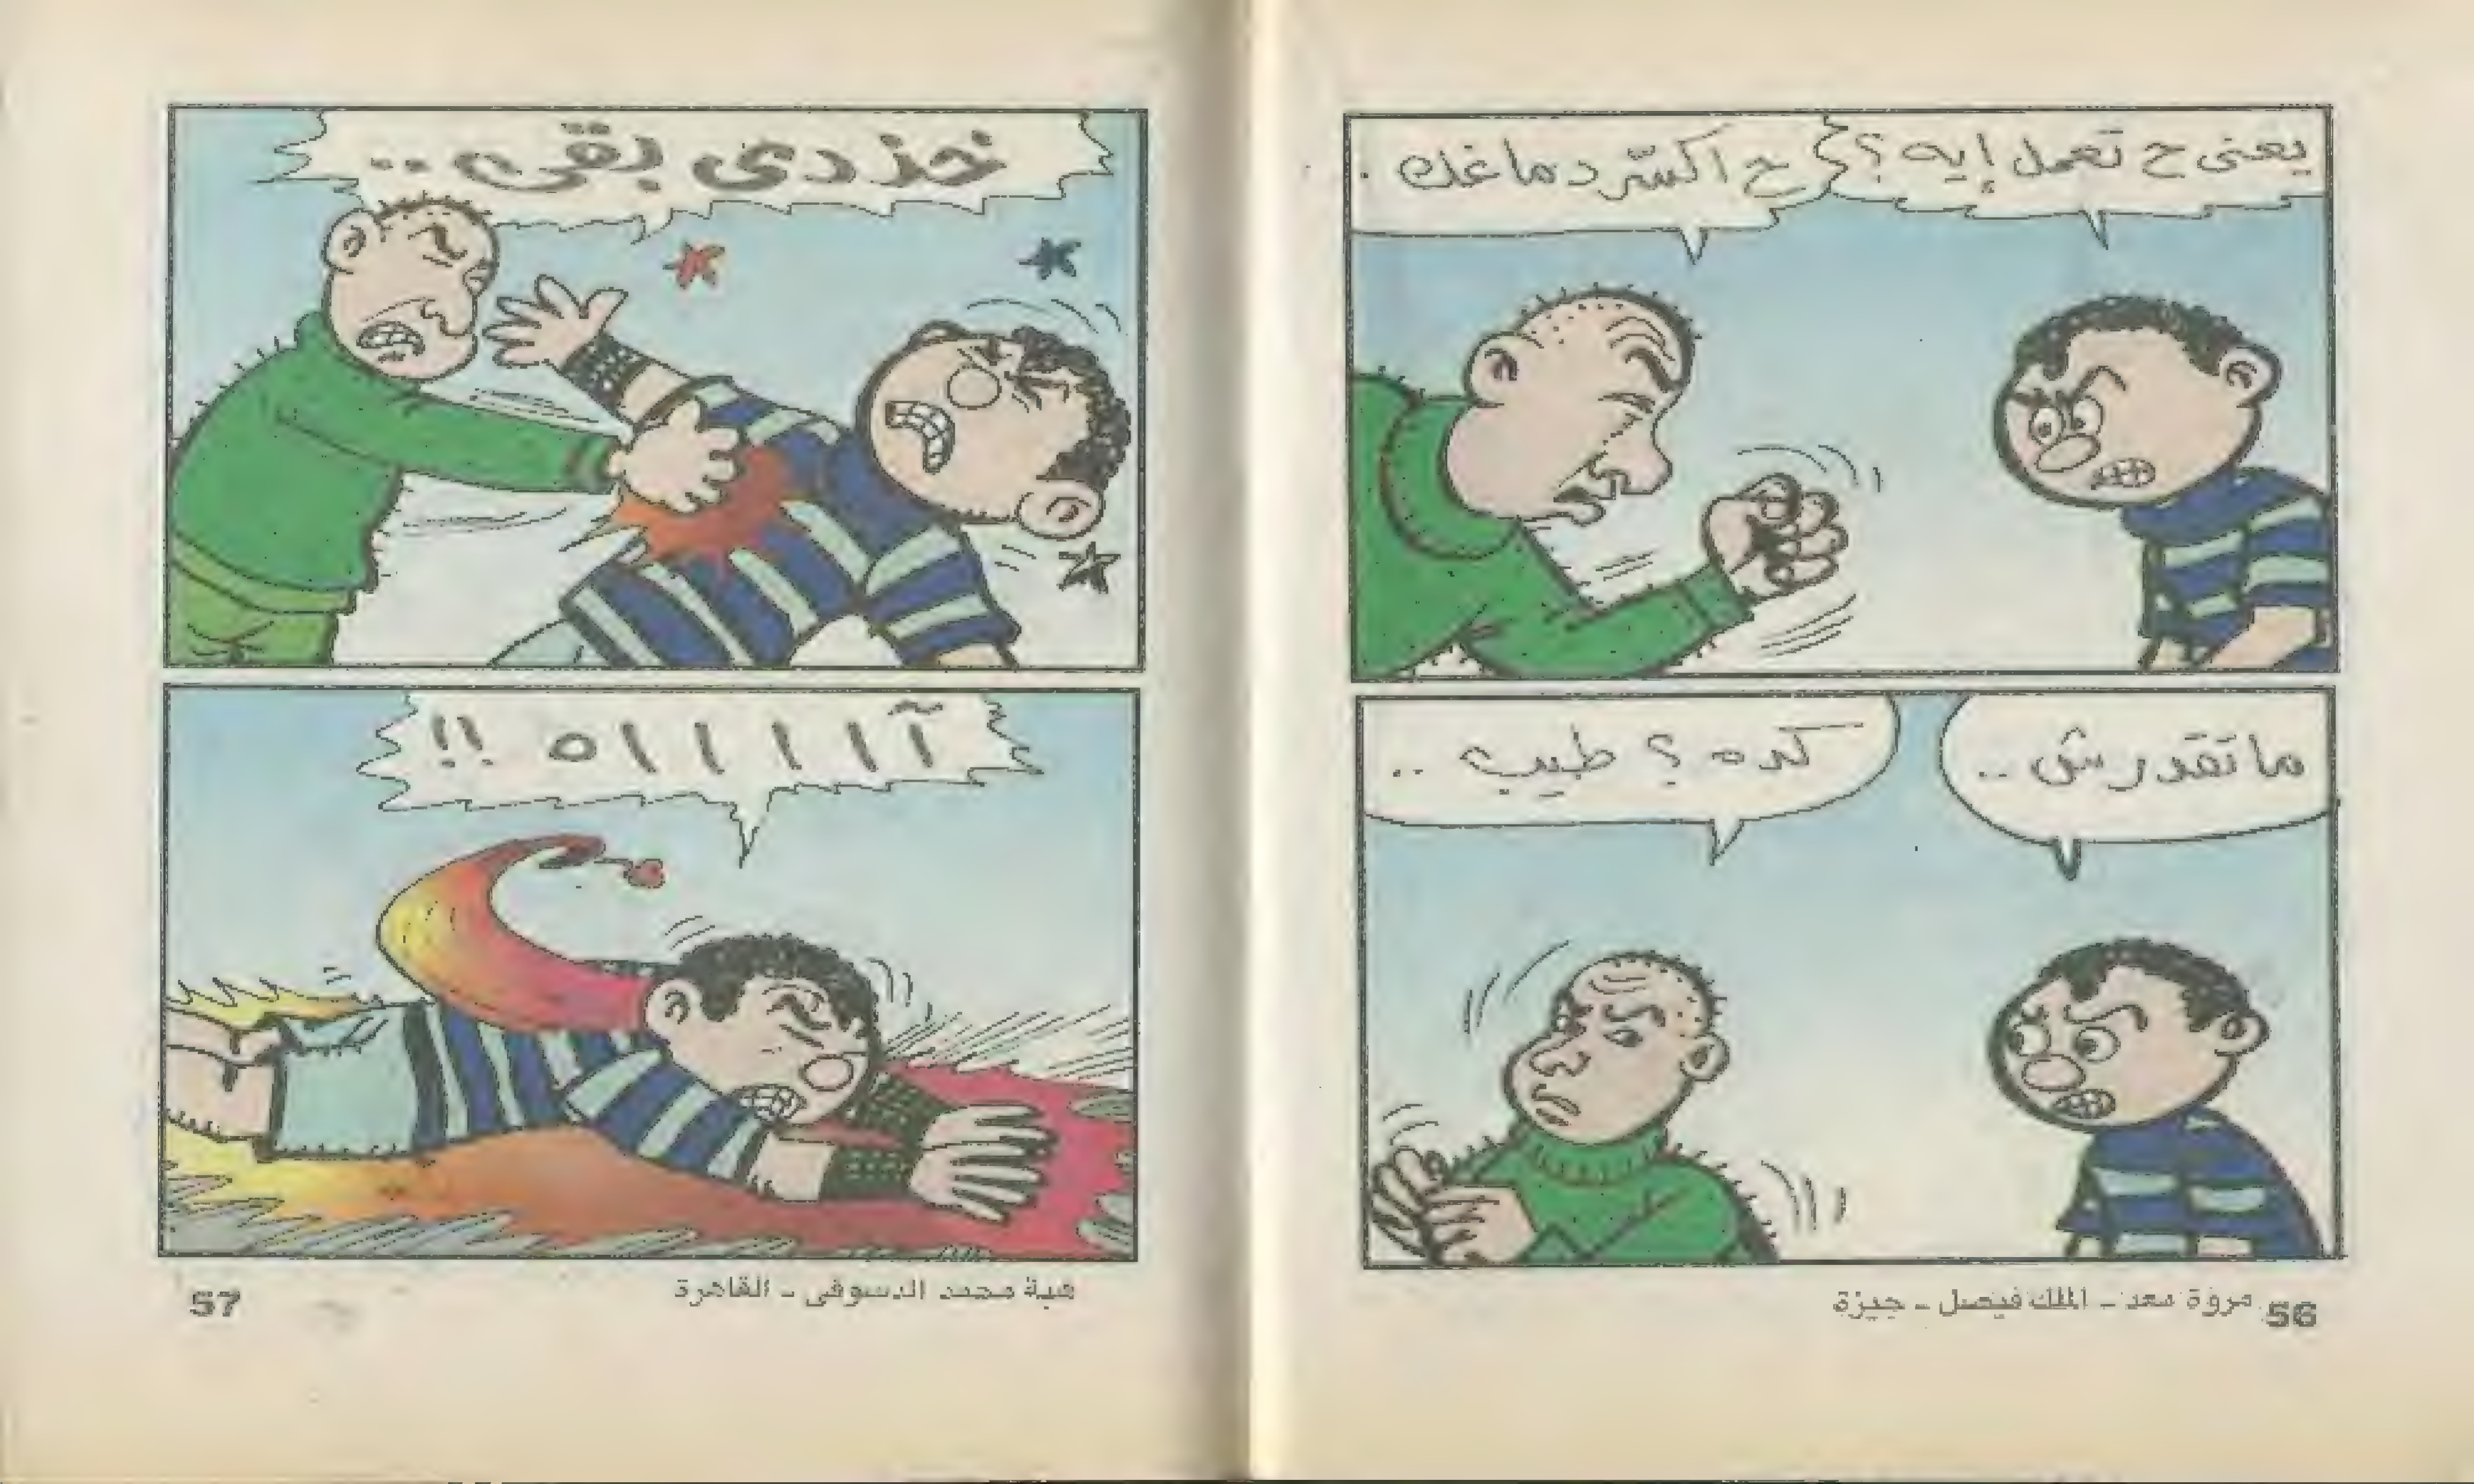 يعنى ح تعمل إيه ؟
ح اكسّر دماغك .
ما تقدرش ..
كده ؟ طيب ..
مروة سعد - الملك فيصل - جيزة
56
خد دى بقى ..
آ ا ا ا ا ه !!
هبة محمد الدسوقى - القاهرة
57